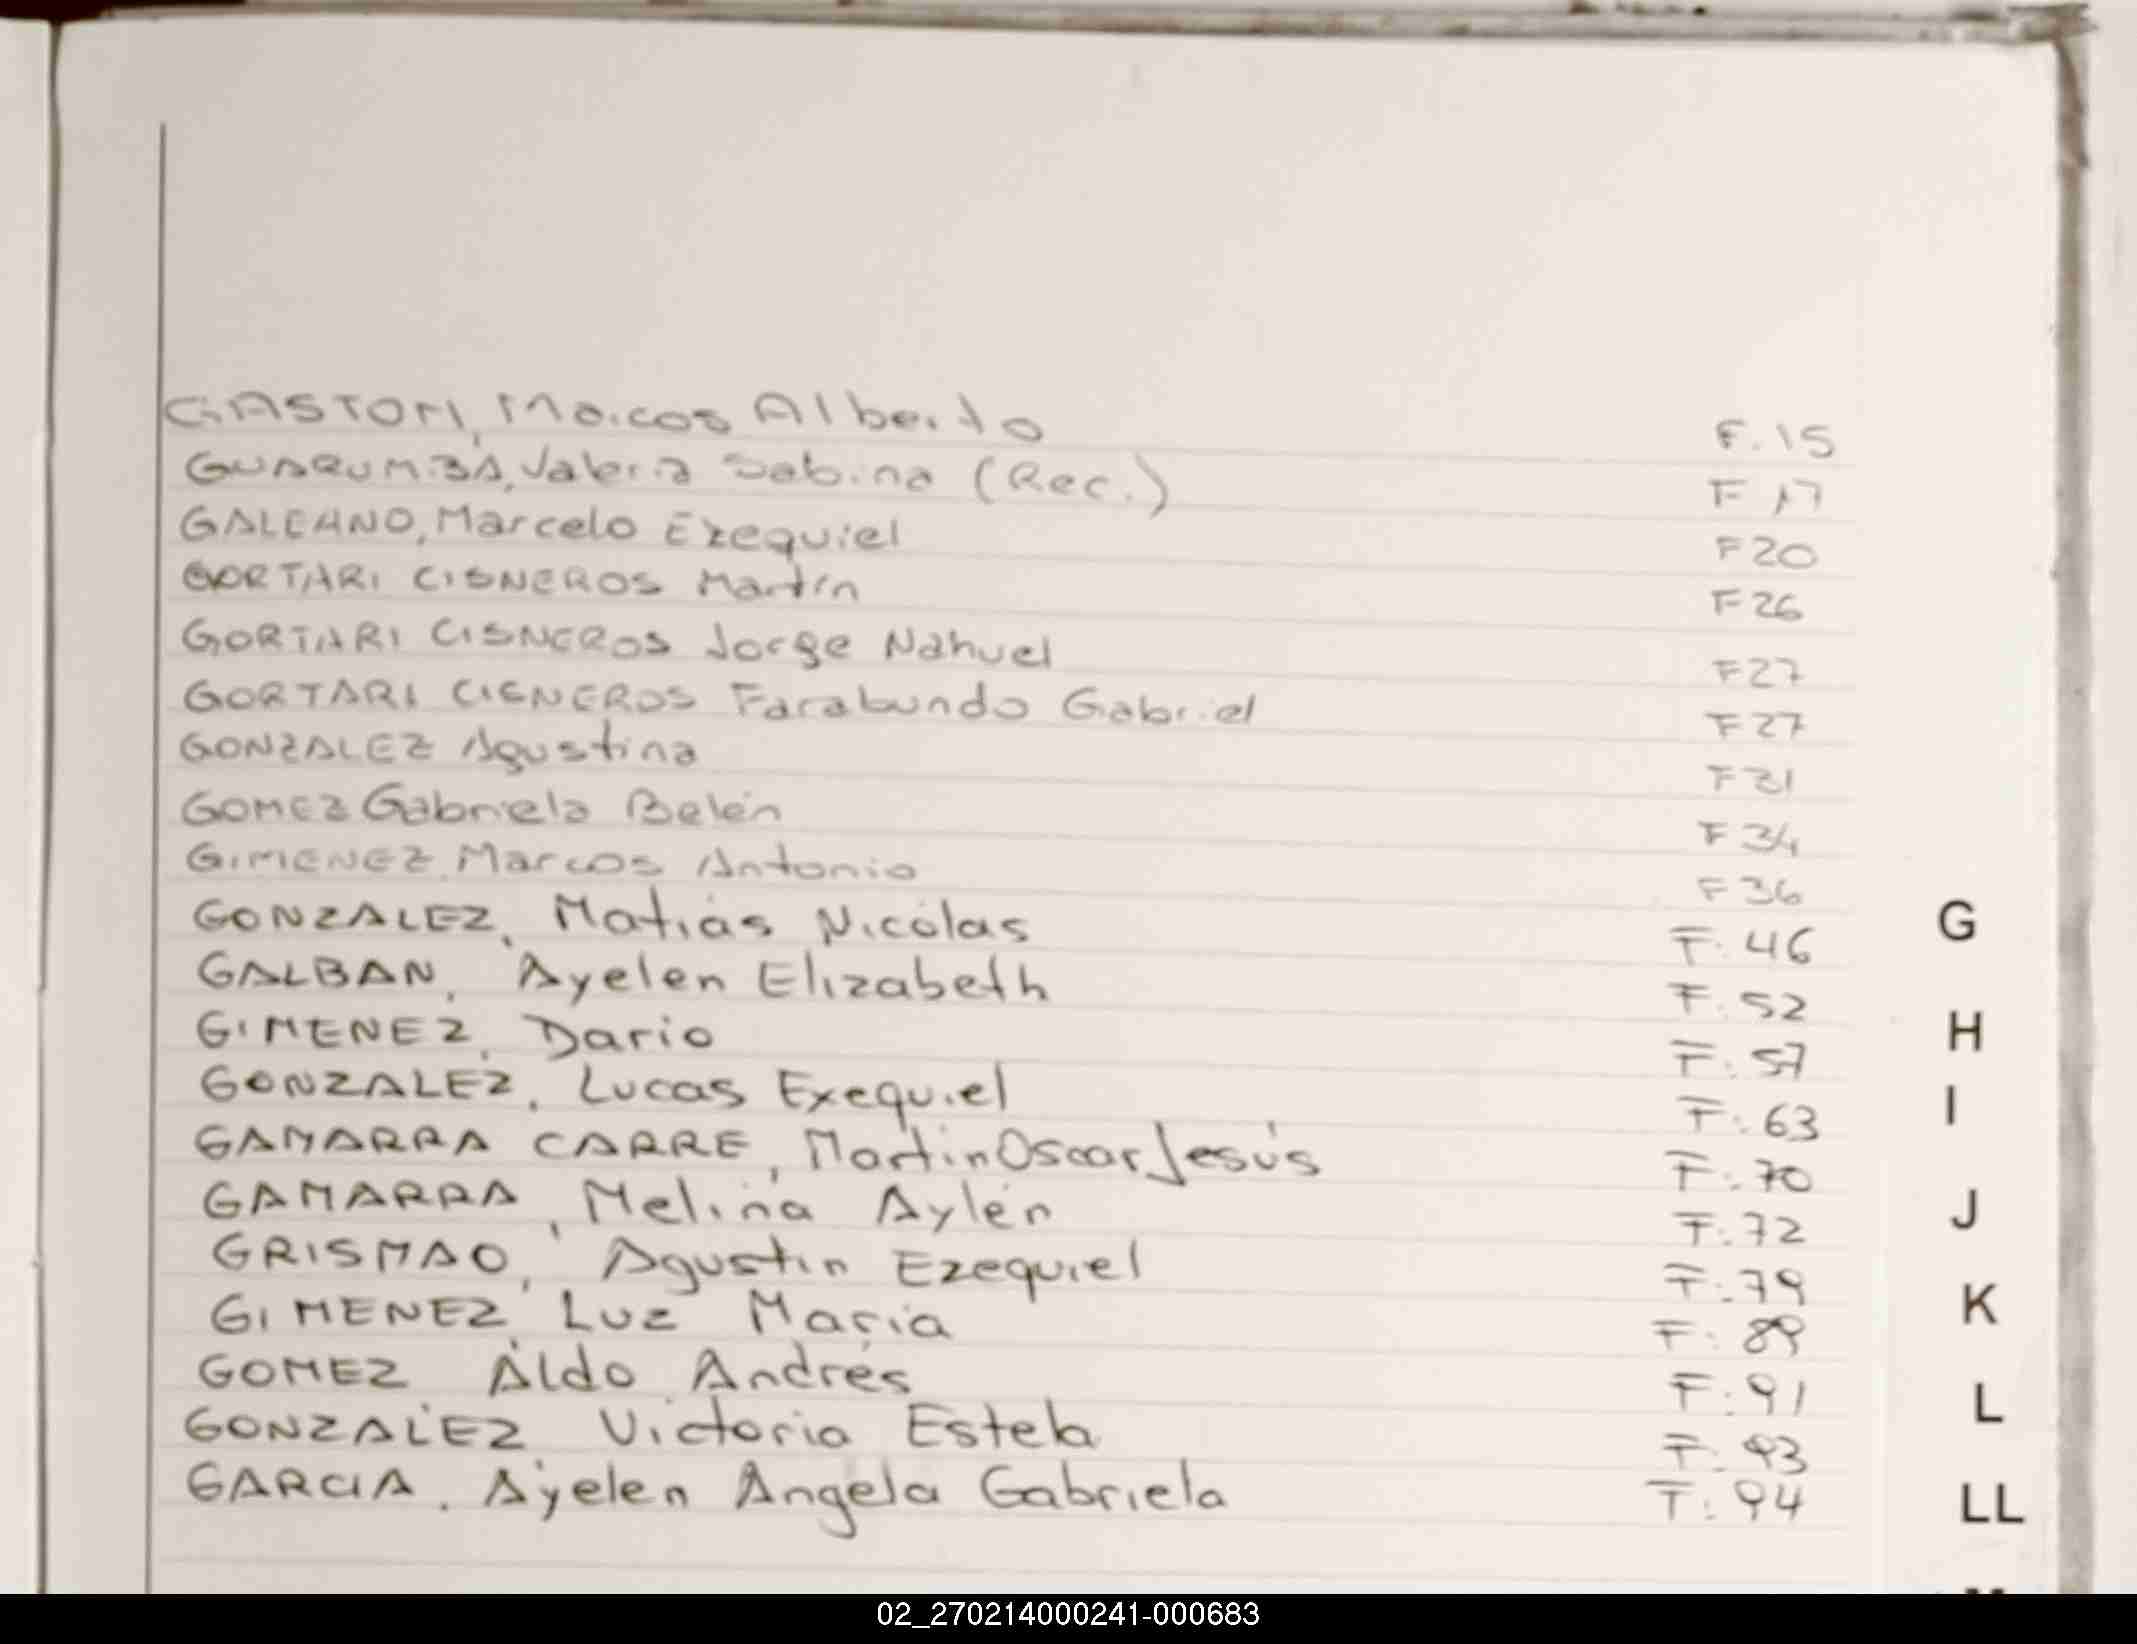 GASTON, Marcos Alberto F. 15
GUARUMBA, Valeria Sabina (Rec.) F 17
GALEANO, Marcelo Ezequiel F 20
GORTARI CISNEROS Martín F 26
GORTARI CISNEROS Jorge Nahuel F 27
GORTARI CISNEROS Farabundo Gabriel F 27
GONZALEZ Agustina F 31
GOMEZ Gabriela Belén F 34
GIMENEZ, Marcos Antonio F 36
GONZALEZ, Matías Nicolas F. 46
GALBAN, Ayelen Elizabeth F. 52
GIMENEZ, Dario F. 57
GONZALEZ, Lucas Exequiel F. 63
GAMARRA CARRE, Martin Oscar Jesús F. 70
GAMARRA, Melina Aylén F. 72
GRISMAO, Agustin Ezequiel F. 79
GIMENEZ, Luz Maria F: 89
GOMEZ, Aldo Andrés F. 91
GONZALEZ, Victoria Estela F. 93
GARCIA, Ayelen Angela Gabriela F: 94
G
H
I
J
K
L
LL
02_270214000241-000683